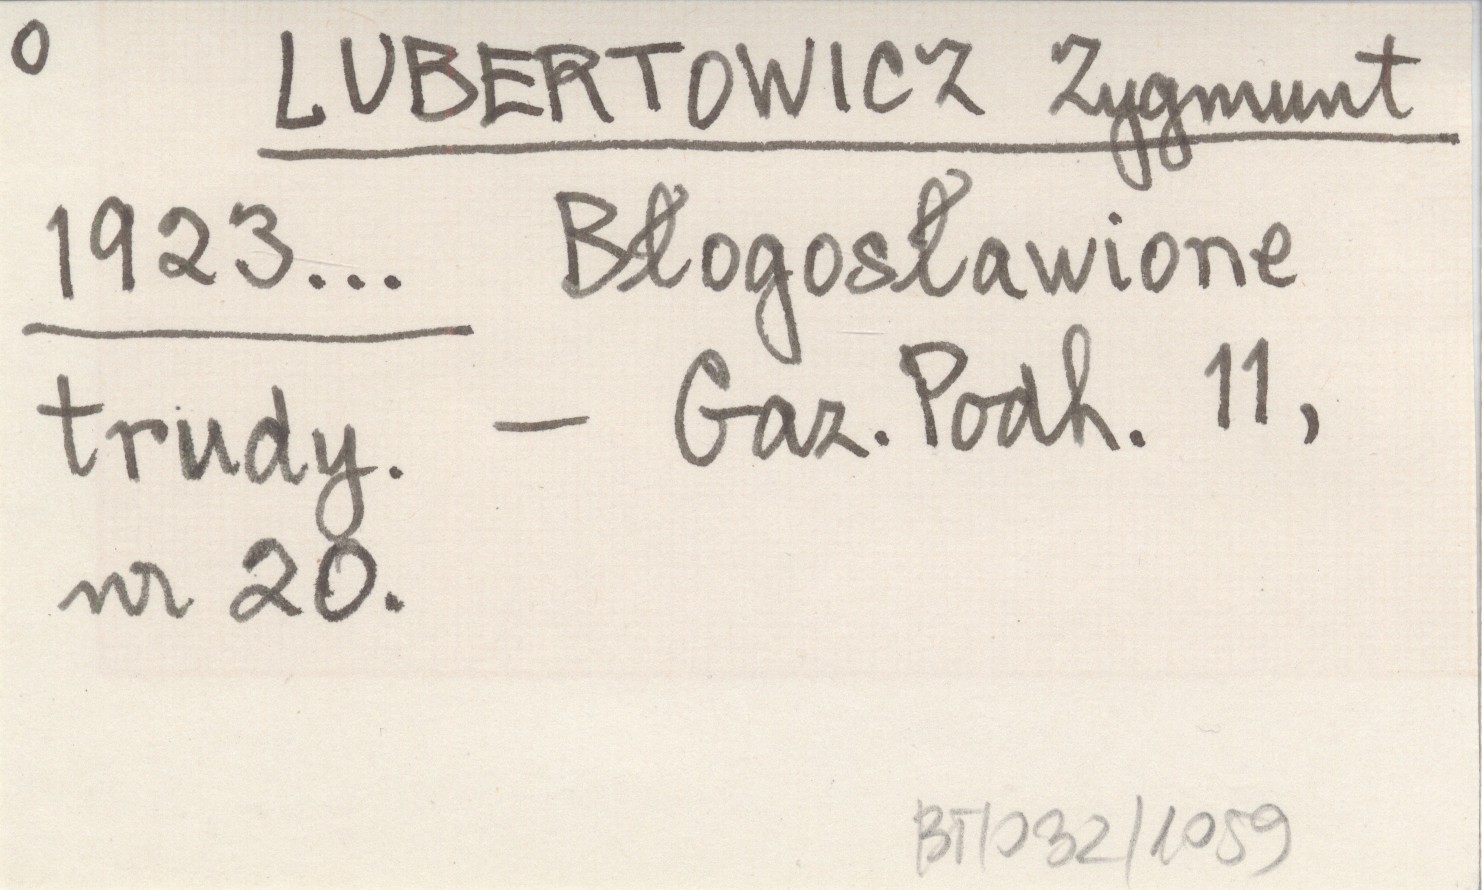 0
LUBERTOWICZ Zygmunt
1923... Błogosławione
trudy. — Gaz. Podh. 11,
nr 20.
BT/032/1059